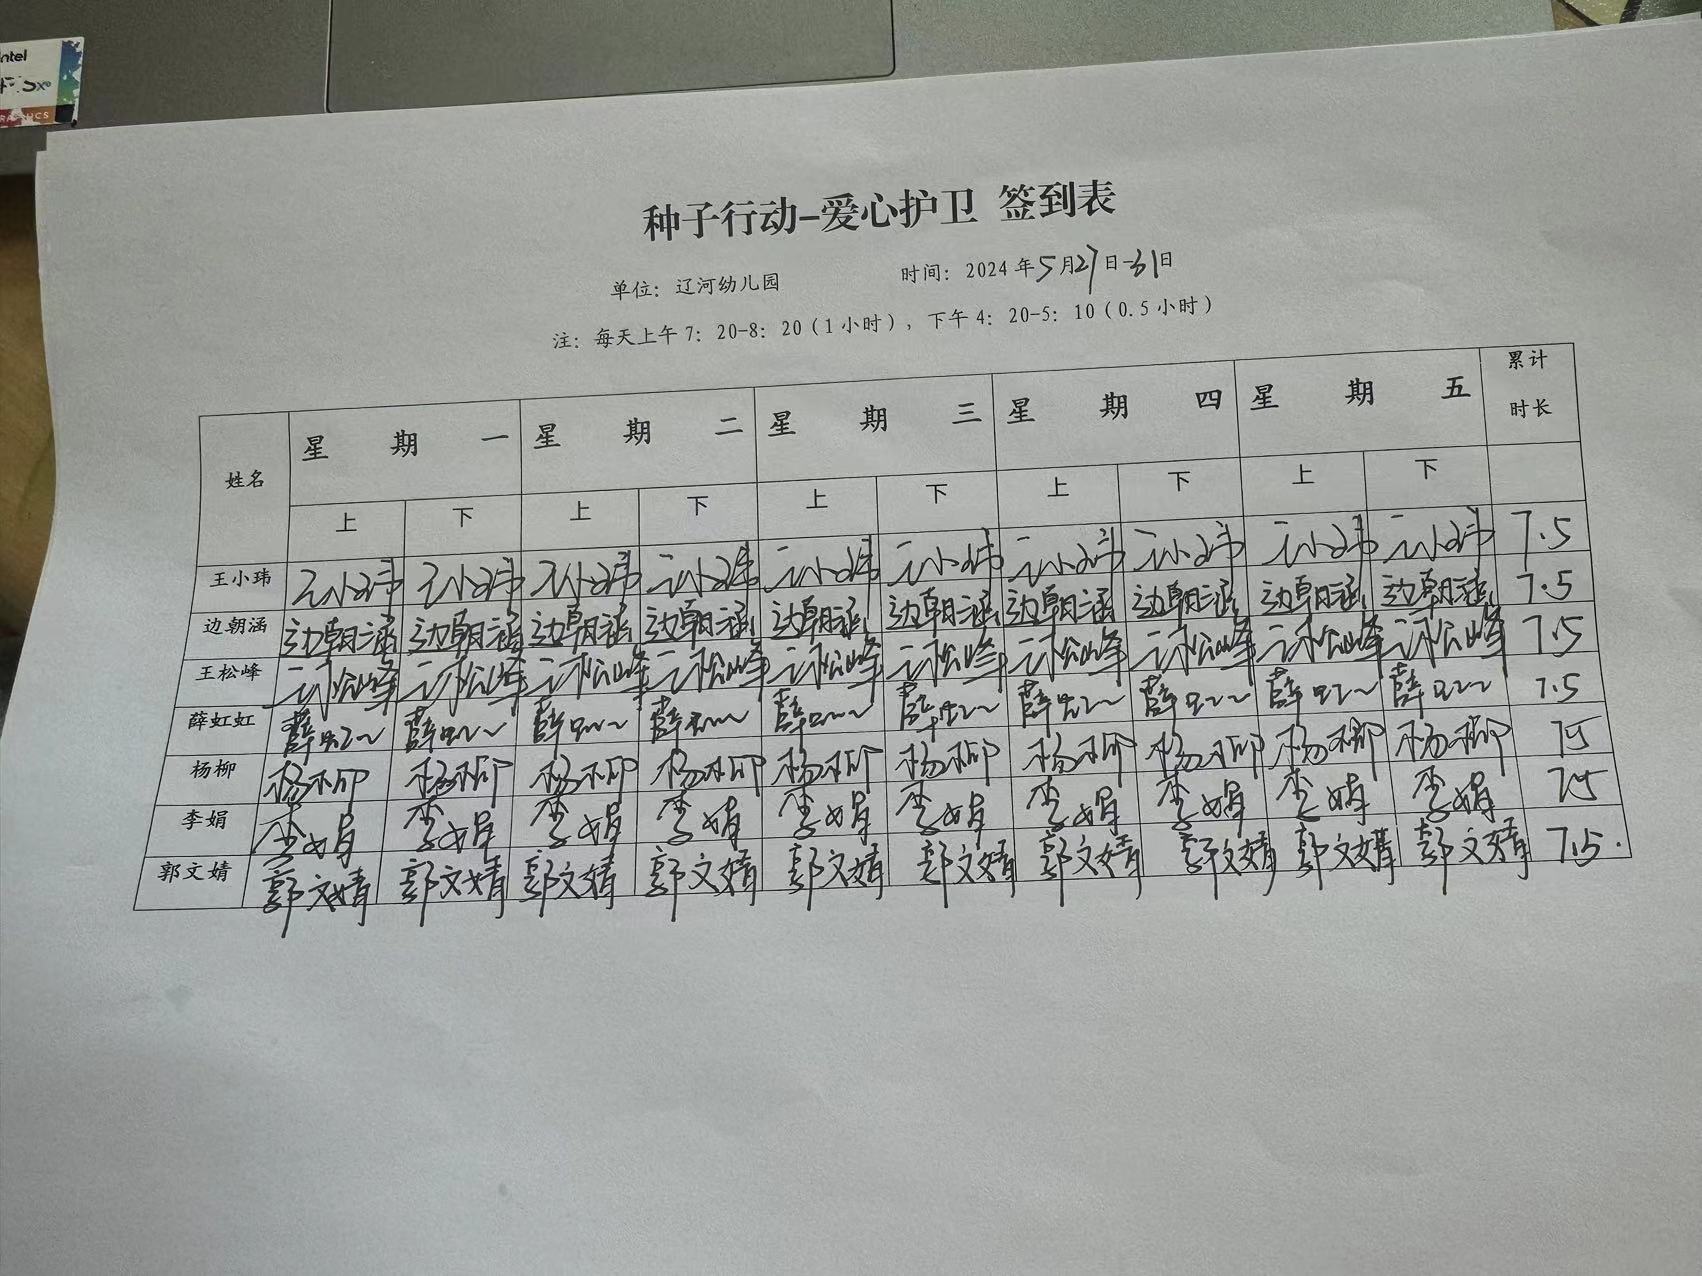 intel
种子行动-爱心护卫 签到表
单位：辽河幼儿园 时间：2024年5月27日-31日
注：每天上午7：20-8：20(1小时)，下午4：20-5：10(0.5小时)
姓名 星期一 星期二 星期三 星期四 星期五 累计时长
上 下 上 下 上 下 上 下 上 下
王小玮 王小玮 王小玮 王小玮 王小玮 王小玮 王小玮 王小玮 王小玮 王小玮 王小玮 7.5
边朝涵 边朝涵 边朝涵 边朝涵 边朝涵 边朝涵 边朝涵 边朝涵 边朝涵 边朝涵 边朝涵 7.5
王松峰 王松峰 王松峰 王松峰 王松峰 王松峰 王松峰 王松峰 王松峰 王松峰 王松峰 7.5
薛虹虹 薛虹~ 薛虹~ 薛虹~ 薛虹~ 薛虹~ 薛虹~ 薛虹~ 薛虹~ 薛虹~ 薛虹~ 7.5
杨柳 杨柳 杨柳 杨柳 杨柳 杨柳 杨柳 杨柳 杨柳 杨柳 杨柳 7.5
李娟 李娟 李娟 李娟 李娟 李娟 李娟 李娟 李娟 李娟 李娟 7.5
郭文婧 郭文婧 郭文婧 郭文婧 郭文婧 郭文婧 郭文婧 郭文婧 郭文婧 郭文婧 郭文婧 7.5.